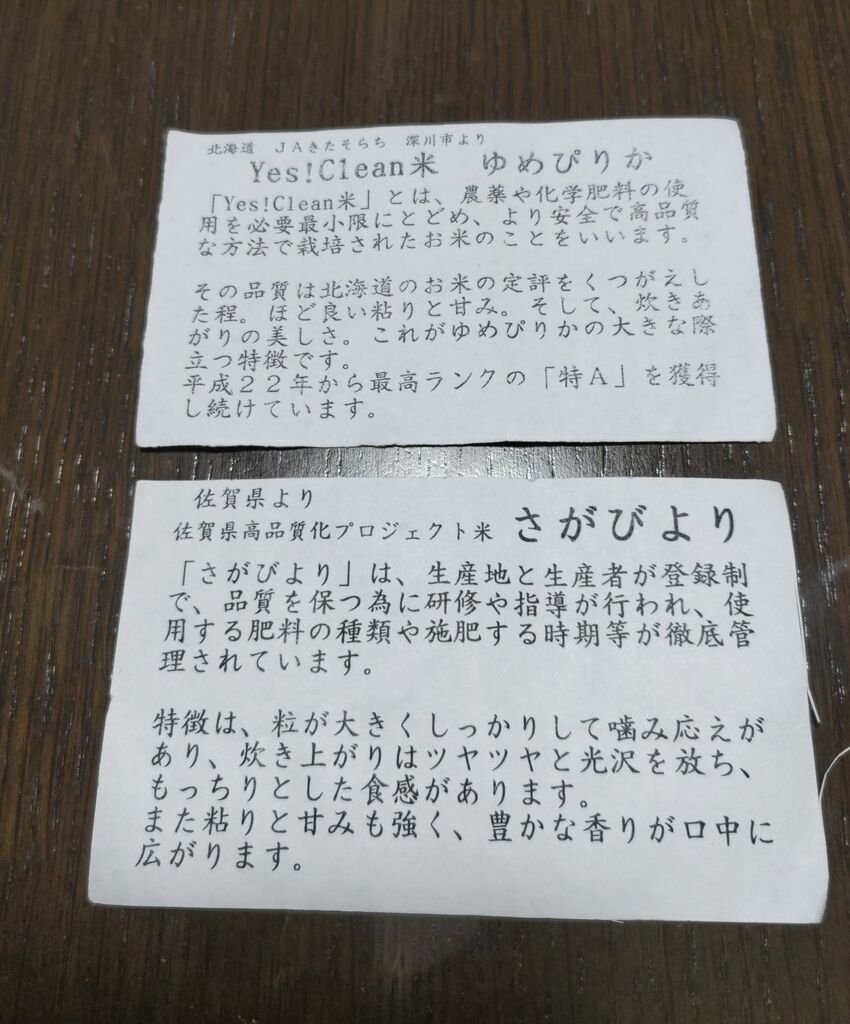 北海道 JAきたそらち 深川市より
Yes!Clean米 ゆめぴりか
「Yes!Clean米」とは、農薬や化学肥料の使
用を必要最小限にとどめ、より安全で高品質
な方法で栽培されたお米のことをいいます。
その品質は北海道のお米の定評をくつがえし
た程。ほど良い粘りと甘み。そして、炊きあ
がりの美しさ。これがゆめぴりかの大きな際
立つ特徴です。
平成22年から最高ランクの「特A」を獲得
し続けています。
佐賀県より
佐賀県高品質化プロジェクト米 さがびより
「さがびより」は、生産地と生産者が登録制
で、品質を保つ為に研修や指導が行われ、使
用する肥料の種類や施肥する時期等が徹底管
理されています。
特徴は、粒が大きくしっかりして噛み応えが
あり、炊き上がりはツヤツヤと光沢を放ち、
もっちりとした食感があります。
また粘りと甘みも強く、豊かな香りが口中に
広がります。